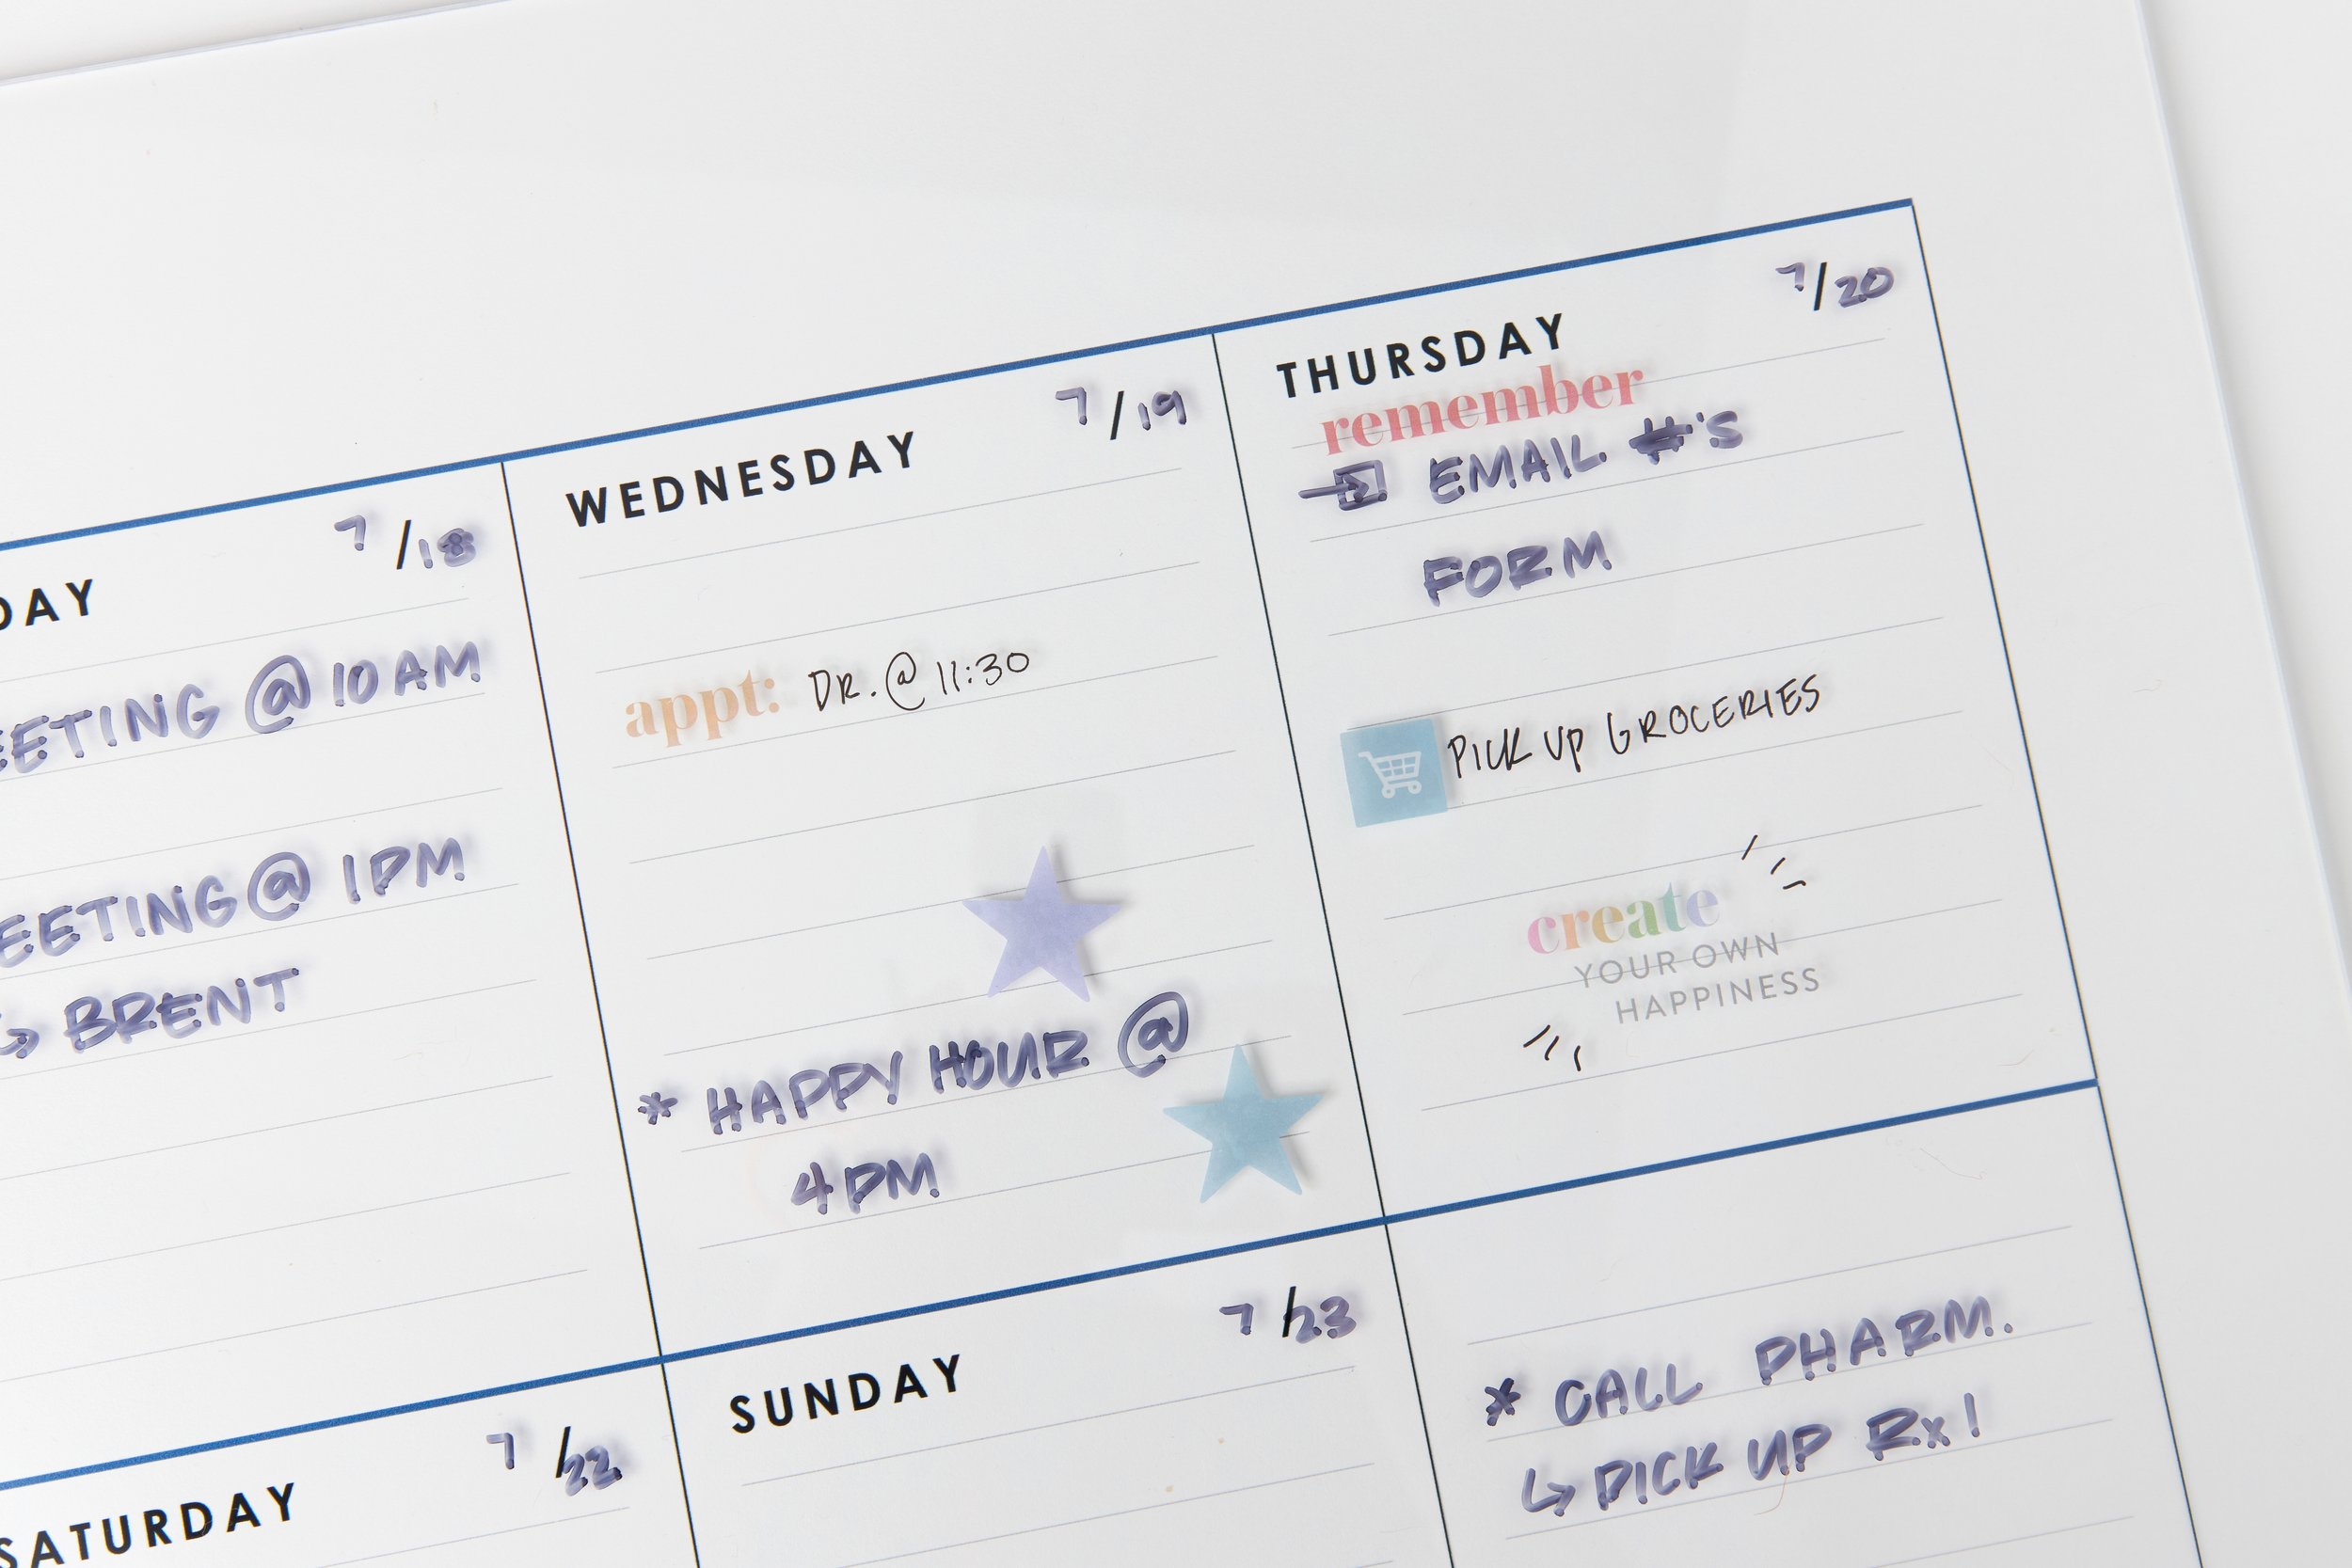 DAY 7/18
EETING @ 10 AM
EETING @ 1 PM
↳ BRENT
WEDNESDAY 7/19
appt: DR. @ 11:30
* HAPPY HOUR @
4 PM
THURSDAY 7/20
remember
EMAIL #'S
FORM
PICK UP GROCERIES
create
YOUR OWN
HAPPINESS
SATURDAY 7/22
SUNDAY 7/23
* CALL PHARM.
↳ PICK UP Rx!